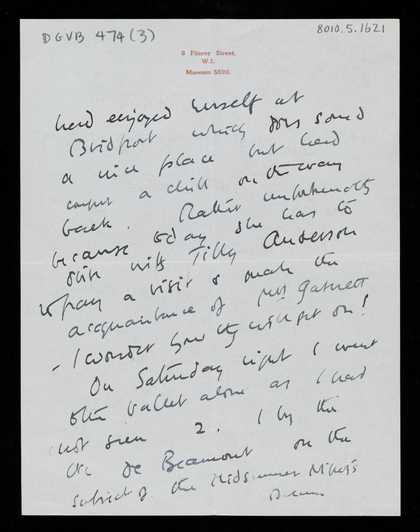 DGVB 474 (3)
8010.5.1621
8 Fitzroy Street,
W.1.
Museum 5592.
had enjoyed herself at
Bridport which does sound
a nice place but had
caught a chill on the way
back. Rather unfortunately
because today she has to
with Tilly Anderson
to pay a visit & make the
acquaintance of Mrs Garnett
- I wonder how they will get on!
On Saturday night I went
to the ballet alone as I had
not seen 2. 1 by the
de Beaumont on the
subject of the Midsummer Night's
Dream